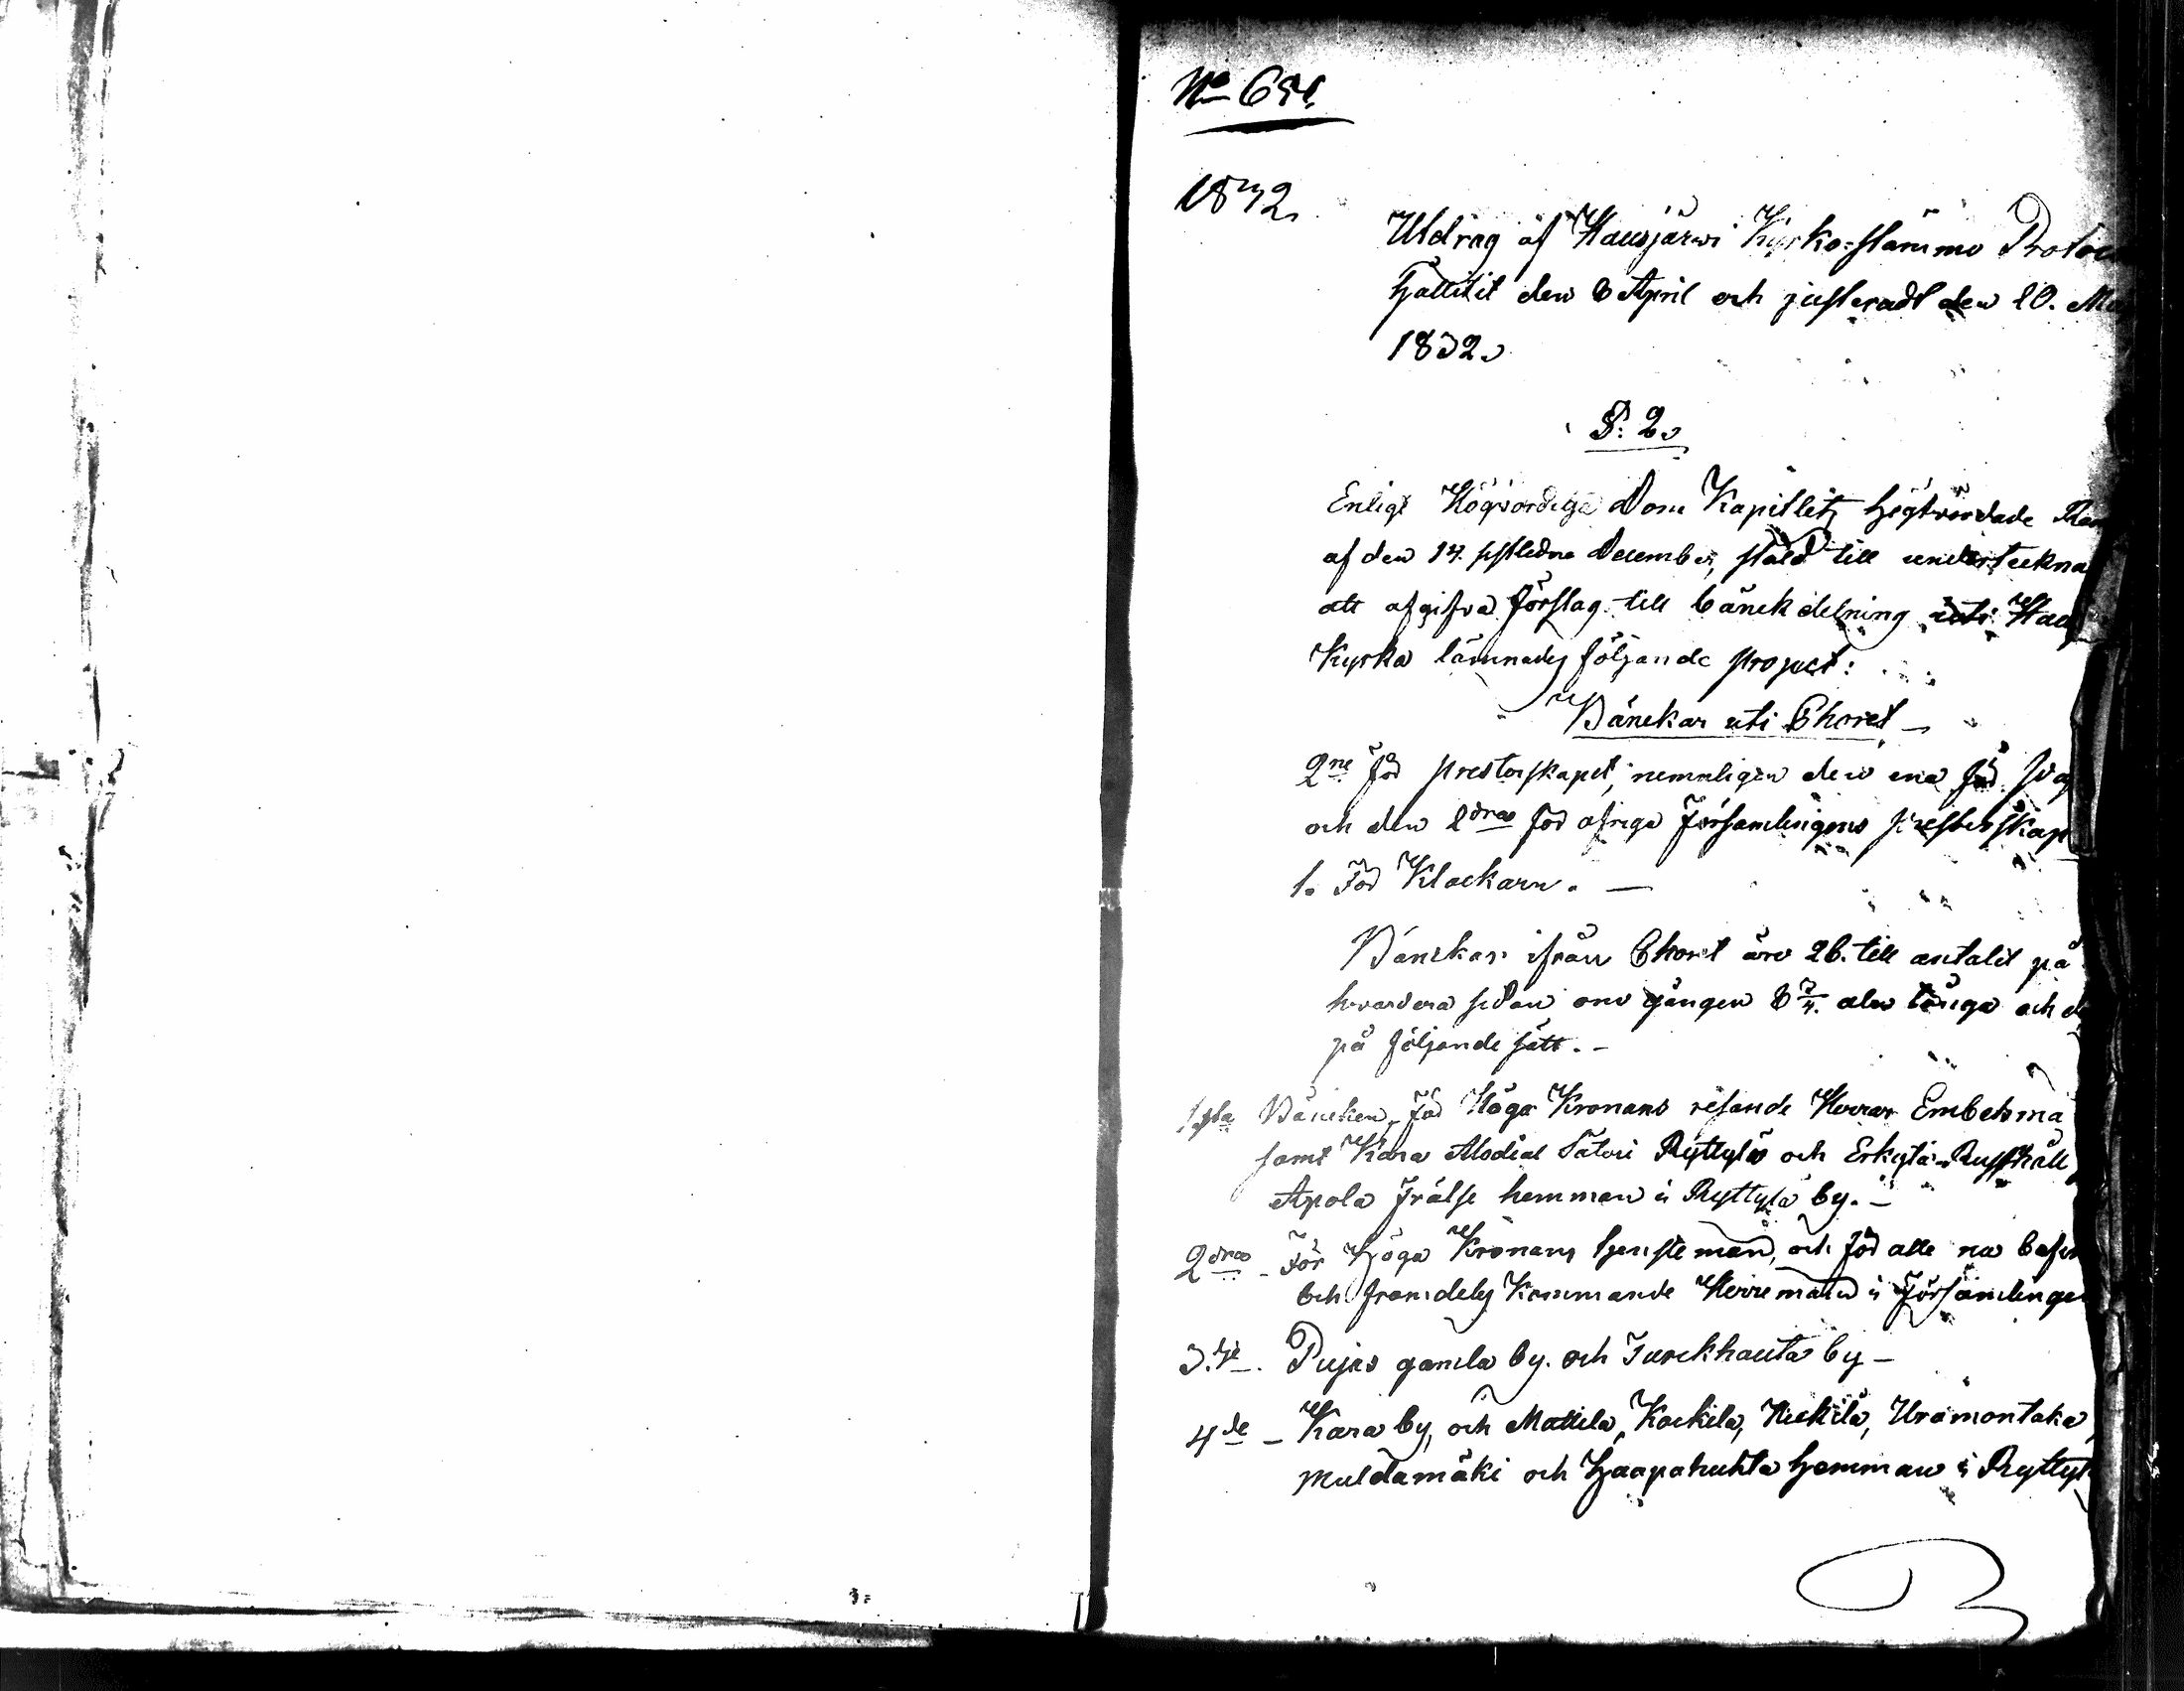 No 651.
1832
Utdrag af Hausjärwi Kyrko-stämmo Protoc
hållitit den 8 April och justeradt den 20. Ma
1832.
§: 2.
Enligt Högvördige Dom Kapitlets högtvördade
af den 14. sistledne December, stäld till undertekna
att afgifva förslag till bänckdelning uti Hau
Kyrka lämnades följande project:
Bänckar uti Choret
2ne för presterskapet, nemnligen den ena för
och den 2dra för öfriga Församlingens presterskap
1. För Klockarn.
Bänckar ifrån Choret äro 26. till antalet på
hvardera sidan om gången 8 3/4. aln långa och
på följande sätt.
1sta Bäncken, För Höga Kronans resande Herrar Embetsmä
samt Kara Alodial Säteri Ryttylä och Erkylä Rusthåll
Apola Frälse hemman i Ryttylä by.
2dra För Höga Kronans hensteman, och för alle nu befin
och framdeles Kommande Herremän i Församlingen
3.dje. Pujas gamla by. och Turckhauta by
4de Kara by, och Mattila, Kockila, Heikilä, Uramontaka,
Muldamäki och Haapahuhta hemman i Ryttyl